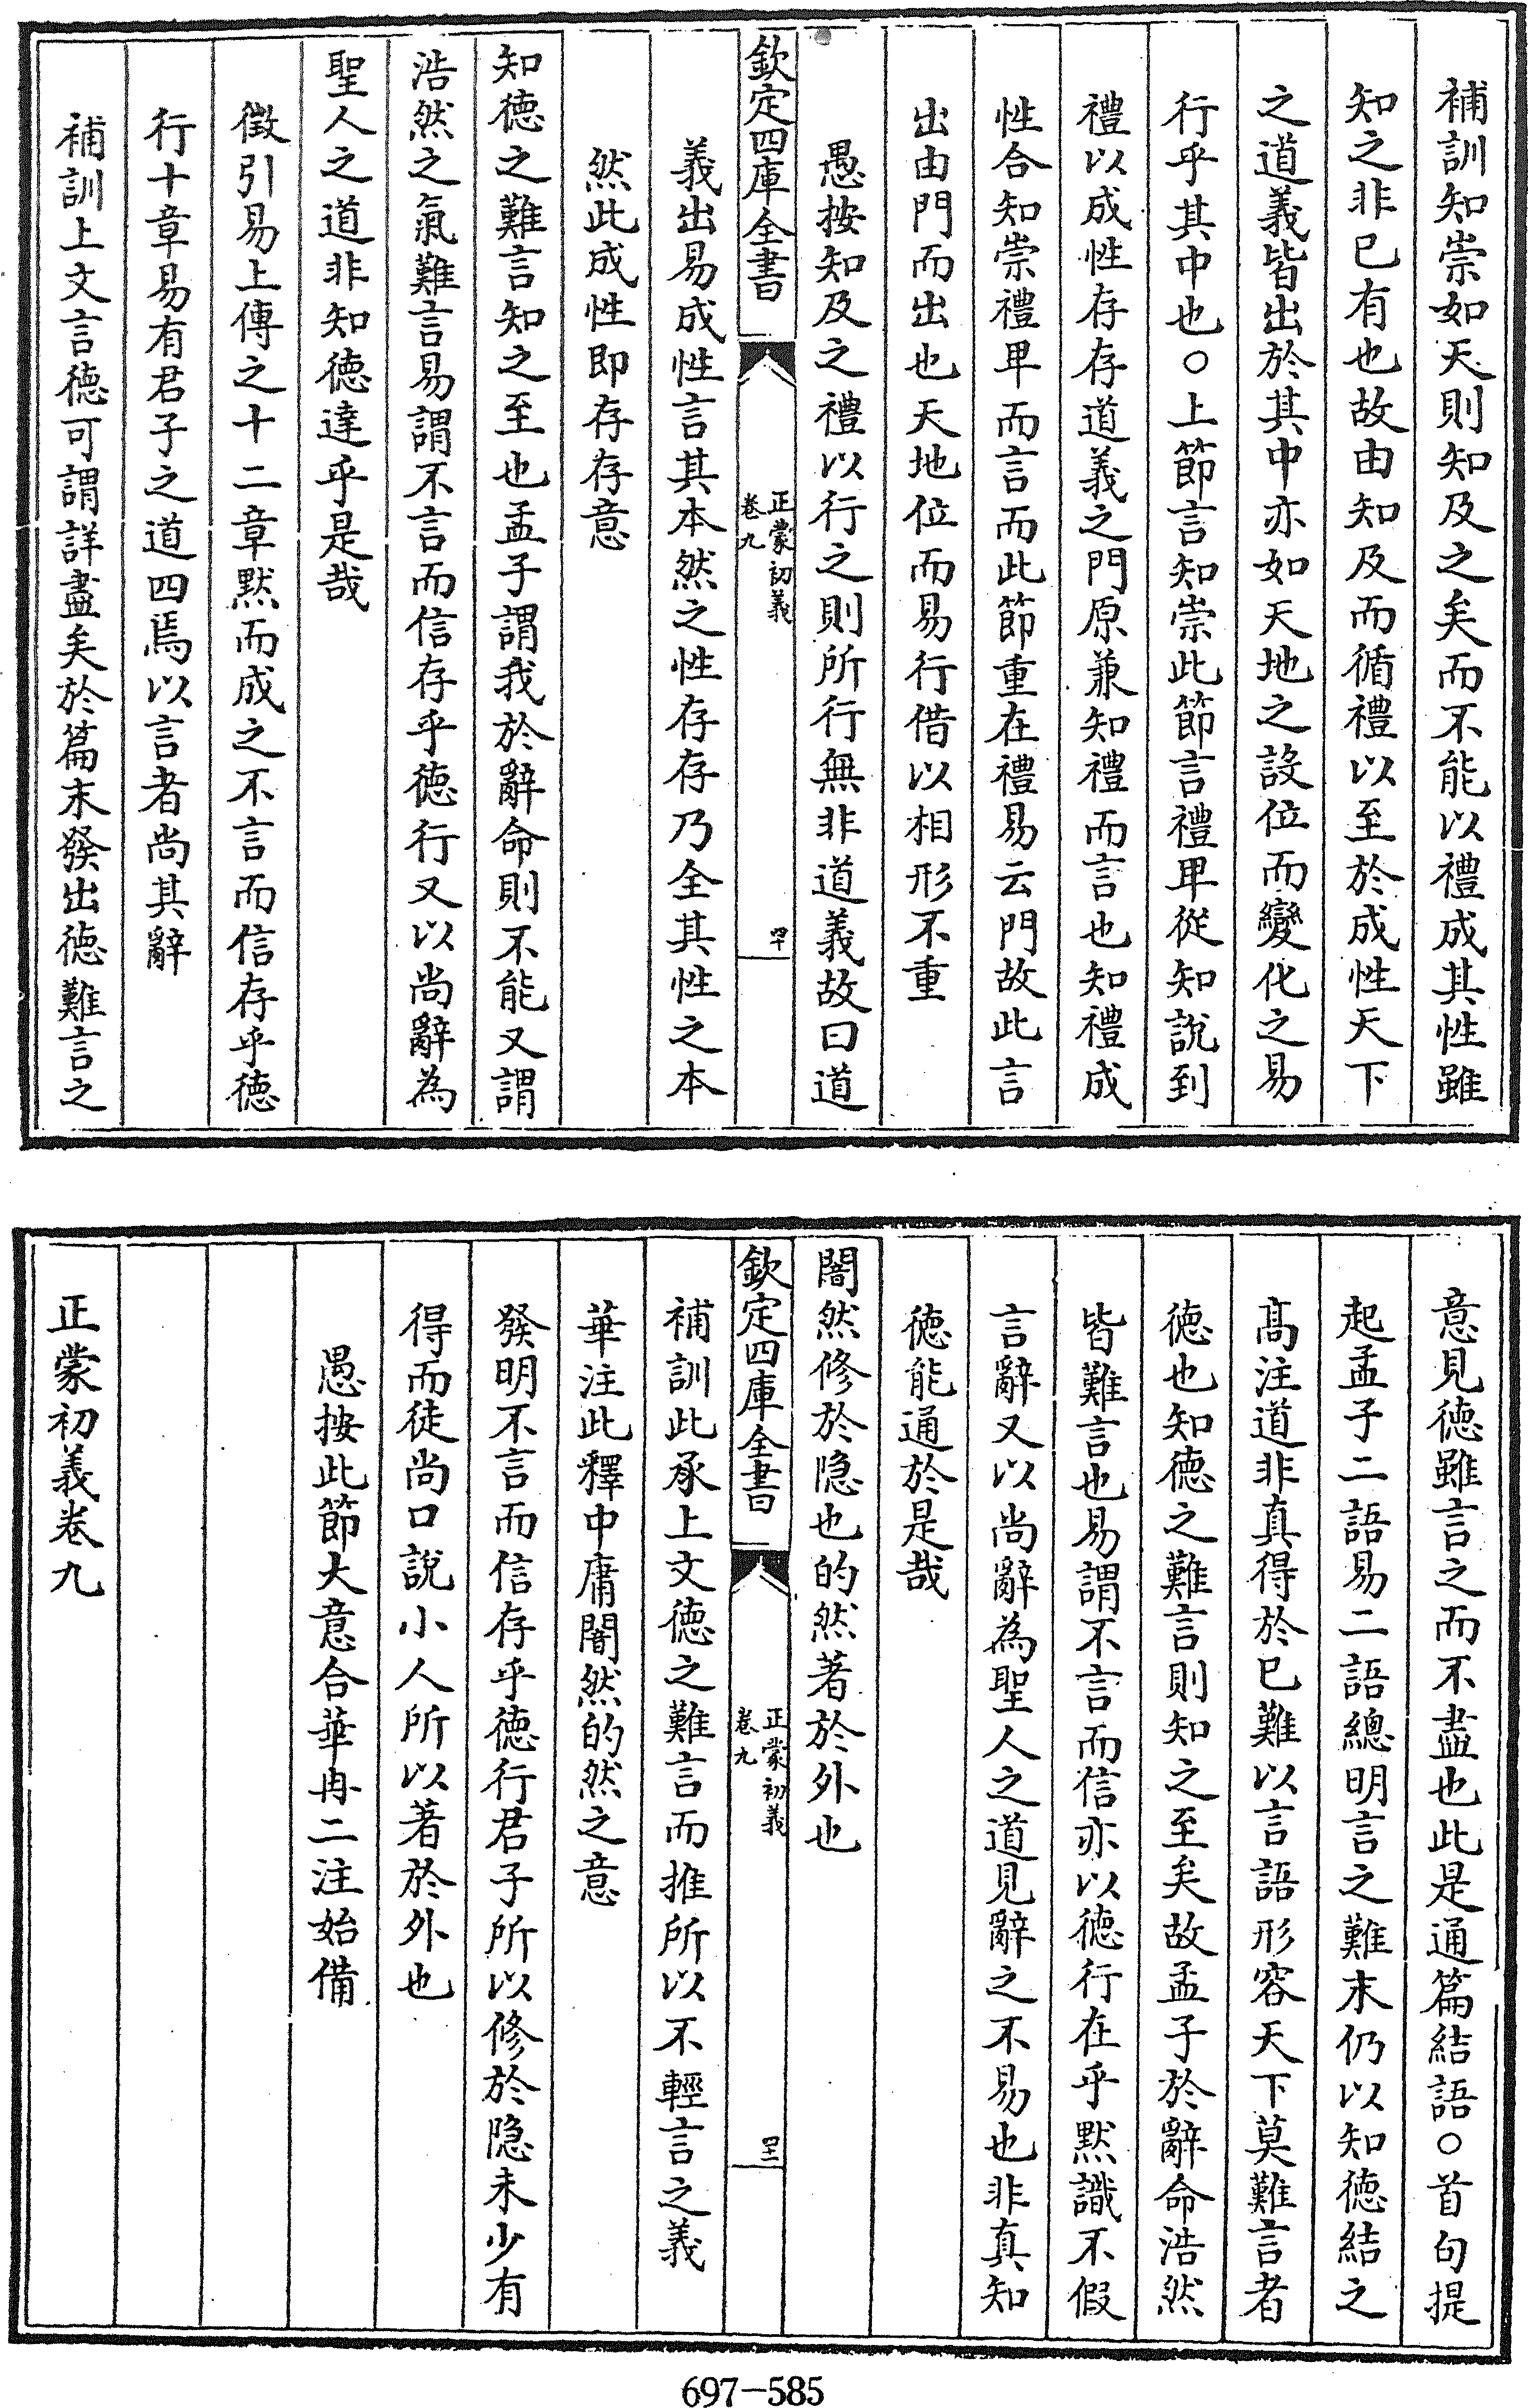 補訓知崇如天則知及之矣而不能以禮成其性雖
知之非已有也故由知及而循禮以至於成性天下
之道義皆出於其中亦如天地之設位而變化之易
行乎其中也○上節言知崇此節言禮卑從知說到
禮以成性存存道義之門原兼知禮而言也知禮成
性合知崇禮卑而言而此節重在禮易云門故此言
出由門而出也天地位而易行借以相形不重
愚按知及之禮以行之則所行無非道義故曰道
欽定四庫全書
正蒙初義
卷九
四十
義出易成性言其本然之性存存乃全其性之本
然此成性即存存意
知德之難言知之至也孟子謂我於辭命則不能又謂
浩然之氣難言易謂不言而信存乎德行又以尚辭為
聖人之道非知德達乎是哉
徵引易上傳之十二章默而成之不言而信存乎德
行十章易有君子之道四焉以言者尚其辭
補訓上文言德可謂詳盡矣於篇末發出德難言之
意見德雖言之而不盡也此是通篇結語○首句提
起孟子二語易二語總明言之難末仍以知德結之
高注道非真得於已難以言語形容天下莫難言者
德也知德之難言則知之至矣故孟子於辭命浩然
皆難言也易謂不言而信亦以德行在乎默識不假
言辭又以尚辭為聖人之道見辭之不易也非真知
德能通於是哉
闇然修於隱也的然著於外也
欽定四庫全書
正蒙初義
卷九
四十一
補訓此承上文德之難言而推所以不輕言之義
華注此釋中庸闇然的然之意
發明不言而信存乎德行君子所以修於隱未少有
得而徒尚口說小人所以著於外也
愚按此節大意合華冉二注始備
正蒙初義卷九
697-585